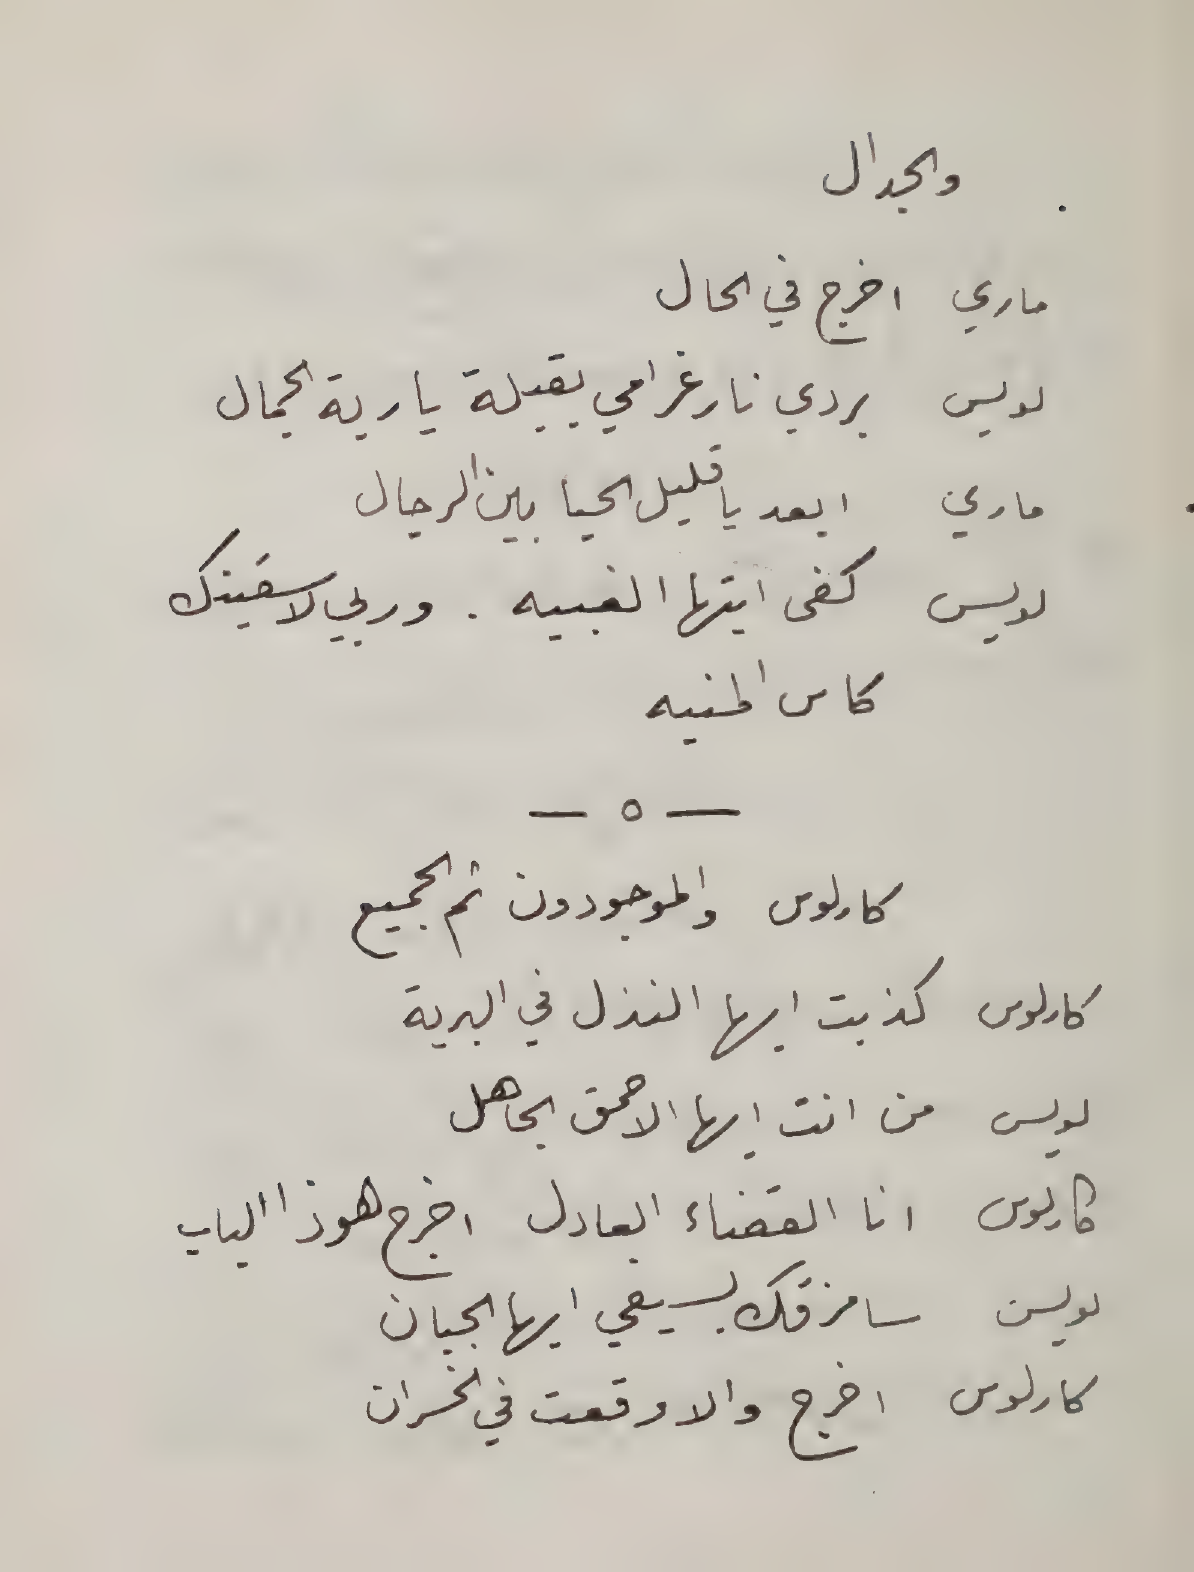 والجدال
ماري اخرج في الحال
لويس بردي نار غرامي بقبلة يا ربة الجمال
ماري ابعد يا قليل الحيا بين الرجال
لويس كفى ايتها الغبيه . وربي لاسقينك
كاس المنيه
— ٥ —
كارلوس والموجودون ثم الجميع
كارلوس كذبت ايها النذل في البرية
لويس من انت ايها الاحمق الجاهل
كارلوس انا القضاء العادل اخرج هوذا الباب
لويس سامزقك بسيفي ايها الجبان
كارلوس اخرج والا وقعت في الخسران